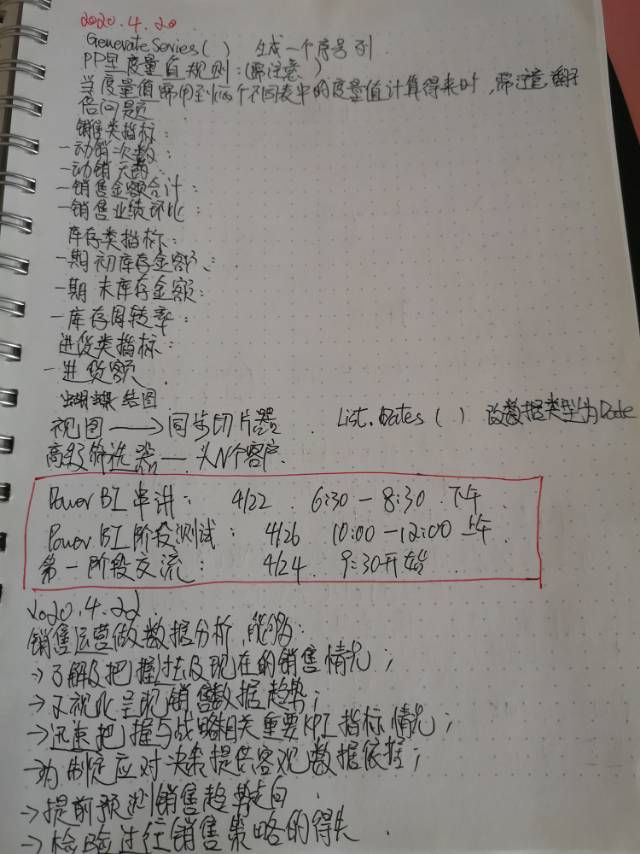 2020.4.20
GenerateSeries( ) 生成一个序号列
PP里度量值规则:(需注意)
当度量值需用到俩个不同表中的度量值计算得来时,需注意翻
倍问题
销售类指标:
-动销次数:
-动销天数:
-销售金额合计:
-销售业绩环比:
库存类指标:
-期初库存金额:
-期末库存金额:
-库存周转率:
进货类指标:
-进货额
蝴蝶结图
视图→同步切片器 List.Dates( ) 改数据类型为Date
高级筛选器—头N个客户
Power BI 串讲: 4/22 6:30-8:30 下午
Power BI 阶段测试: 4/26 10:00-12:00 上午
第一阶段交流: 4/24 9:30开始
2020.4.22
销售运营做数据分析,能够:
→了解及把握过去及现在的销售情况;
→可视化呈现销售数据趋势;
→迅速把握与战略相关重要KPI指标情况;
→为制定应对决策提供客观数据依据;
→提前预测销售趋势走向
→检验过往销售策略的得失